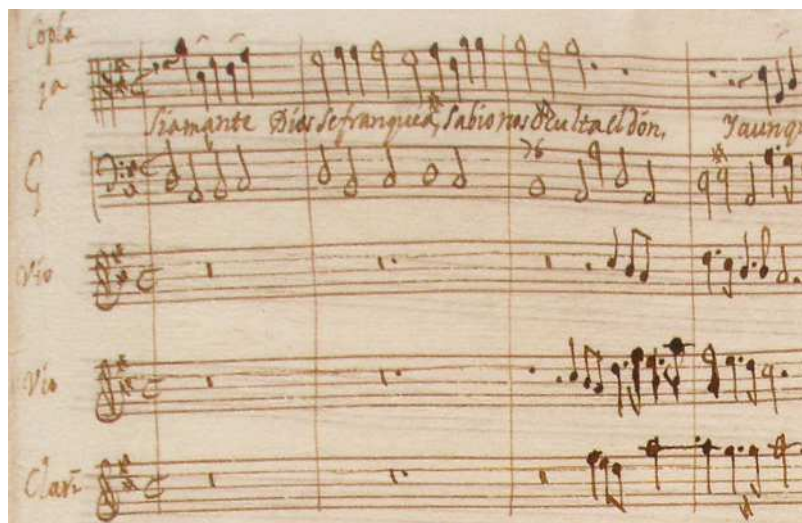 Copla
1a
Siamante Dios se franquea, sabio nos oculta el dón, Yaunq
G
76
Vio
Vio
Clarí